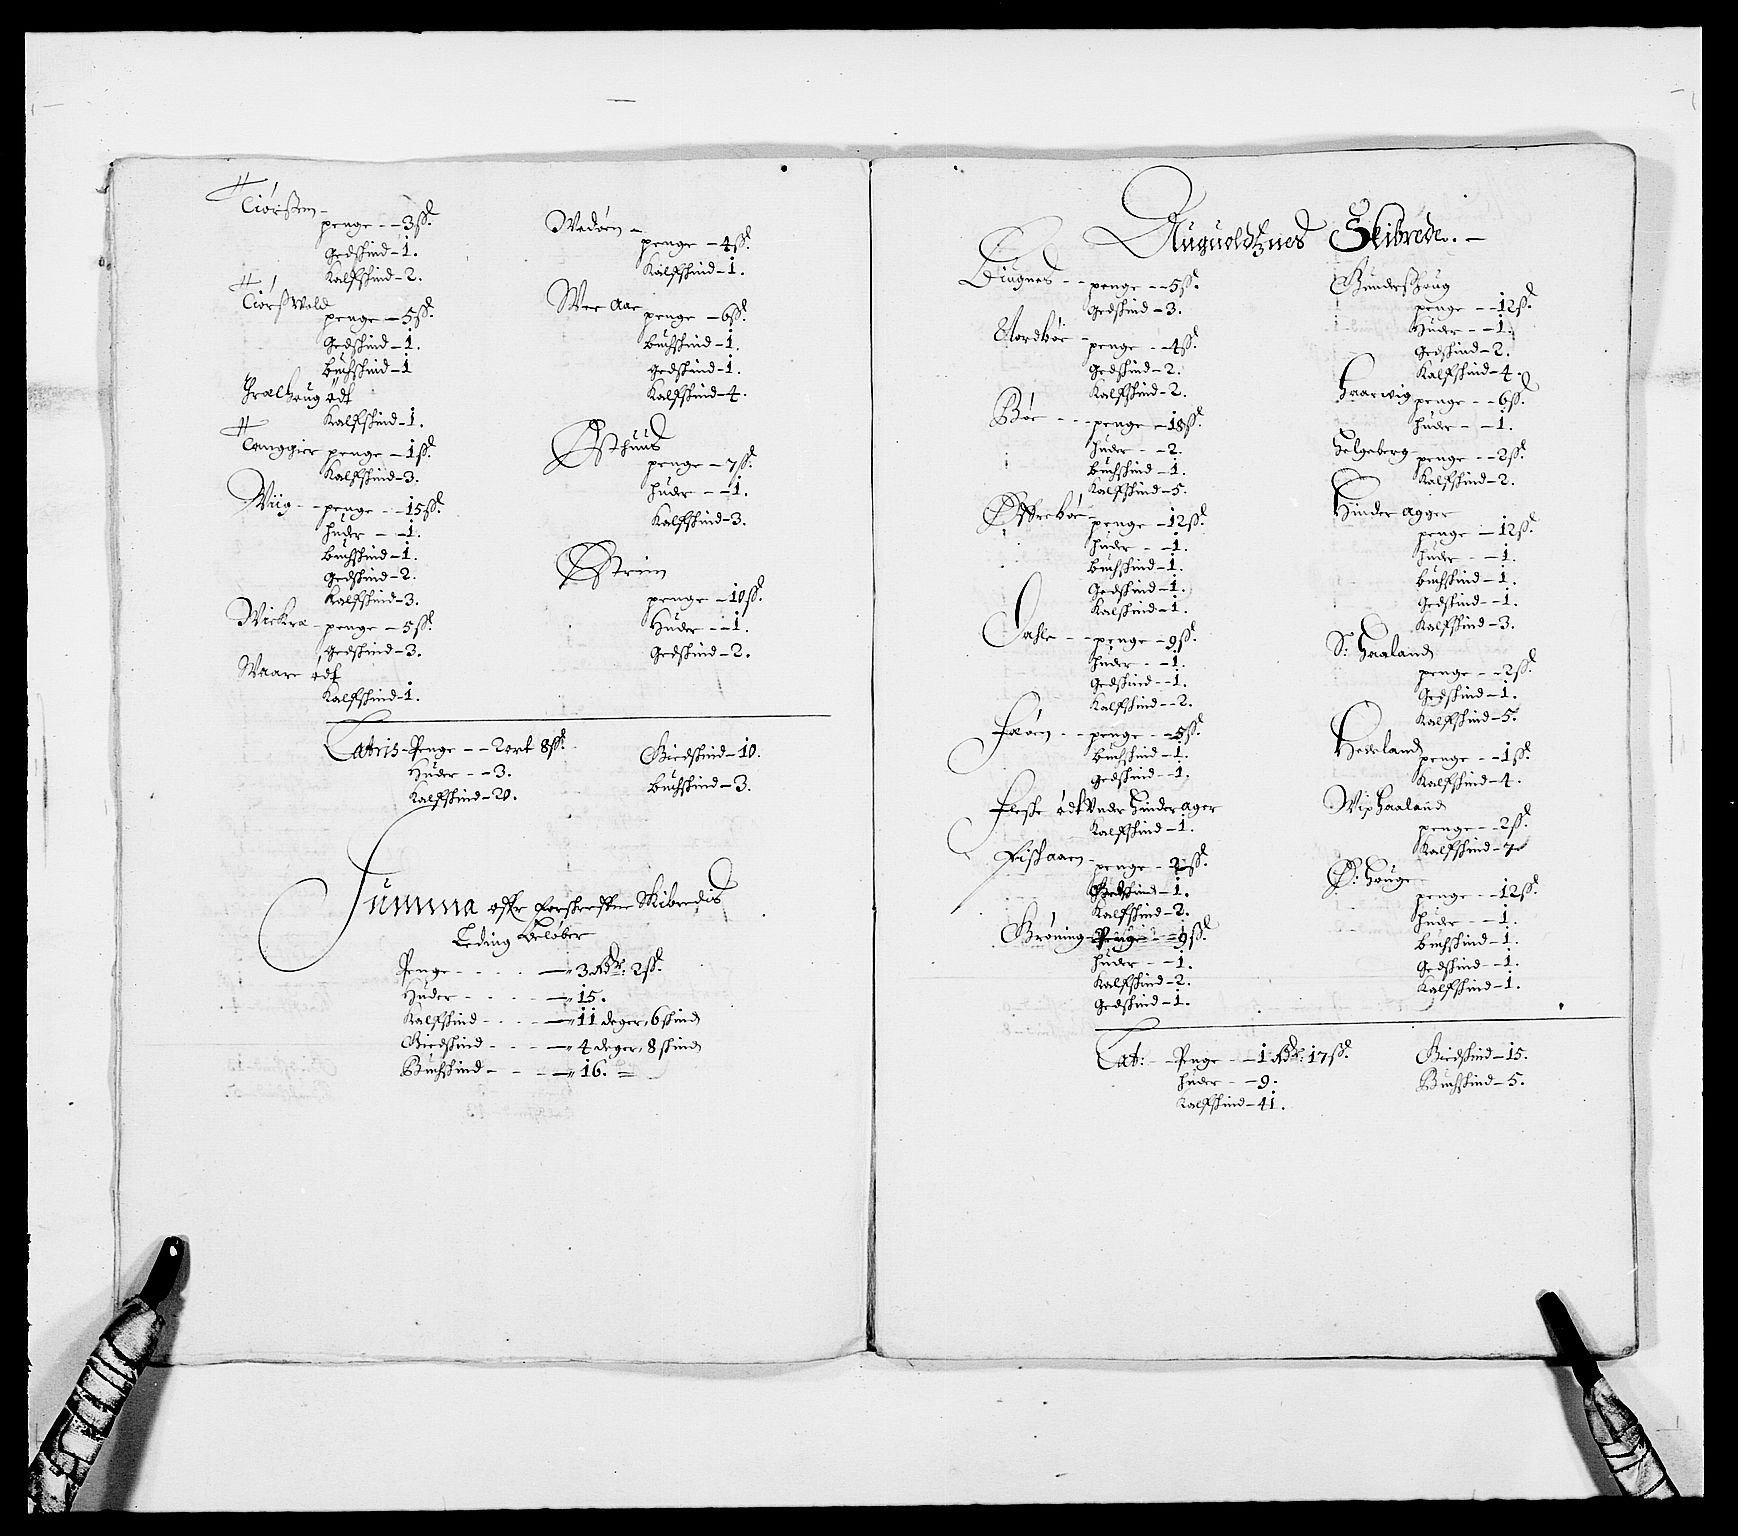 Tiørsten –
penge – – 3 sk.
Gedskind – 1.
Kalfskind – 2.
Tiørswold
penge – 5 sk.
Gedskind – 1.
buchskind – 1
Grælhoug ødt
Kalfskind – 1.
Tanggier penge – 1 sk.
Kalfskind – 3.
Wiig – – penge – – 15 sk.
huder – – 1.
buchskind – 1.
Gedskind – 2.
Kalfskind – 3.
Wickra – penge – 5 sk.
Gedskind – 3.
Waare ødt
Kalfskind – 1.
Wedøen –
penge – 4 sk.
Kalfskind – 1.
Wee Aae
penge – 6 sk.
buchskind – 1.
gedskind – 1.
Kalfskind – 4.
Østhuus
penge – 7 sk.
huder – – 1.
Kalfskind – 3.
Østrim
penge – 10 sk.
Huder – – 1.
Gedskind – 2.
Lateris – Penge – – 2 ort 8 sk.
Huder – – 3.
Kalfskind – 20.
Giedskind – 10.
buchskind – 3.
Summa offr forskreffne Skibredis
Leding Beløber
Penge – – – – 3 Rdr: 2 sk.
Huder – – – – 15.
Kalfskind – – – 11 deger, 6 skind
Giedskind – – – 4 deger, 8 skind
Buchskind – – – 16. =
Auguoldznes Skibrede. –
Biugnes – – penge – – 5 sk.
Gedskind – 3.
Nordbøe –
penge – – 4 sk.
gedskind – 2.
Kalfskind – 2.
Bøe – – – penge – 18 sk.
huder – – 2.
buchskind – 1.
Kalfskind – 5.
Øffrebøe –
penge – 12 sk.
huder – – 1.
buchskind – 1.
Gedskind – 1.
Kalfskind – 1.
Dahle – – – penge – 9 sk.
huder – – 1.
gedskind – 1.
Kalfskind – – 2.
Feøen – – penge – – 5 sk.
buchskind – 1.
gedskind – 1.
Fleske ødt Vnder Hinderager
Kalfskind – 1.
Fiskaaen –
penge – 2 sk.
Gedskind – 1.
Kalfskind – 2.
Grøning – Penge – – 9 sk.
huder – – 1.
Kalfskind – 2.
Gedskind – 1.
Gundershoug
penge – – 12 sk.
Huder – – 1.
Gedskind – 2.
Kalfskind – 4.
Haarwig penge – – 6 sk.
huder – – 1.
Helgeberg penge – – 2 sk.
Kalfskind – 2.
Hinder agger
penge – 12 sk.
huder – – 1.
buchskind – 1.
Gedskind – – 1.
Kalfskind – 3.
S: Haaland
penge – – 2 sk.
Gedskind – 1.
Kalfskind – 5.
Heieland
penge – – 1 sk.
Kalfskind – 4.
Wix Haaland
penge – – 2 sk.
Kalfskind – 7
Ø: Houge
penge – – 12 sk.
huder – – 1.
buchskind – 1.
Gedskind – – 1.
Kalfskind – 1.
Lat: – – Penge – – 1 Rdr: 17 sk.
huder – – 9.
Kalfskind – 41.
Giedskind – 15.
Buchskind – 5.